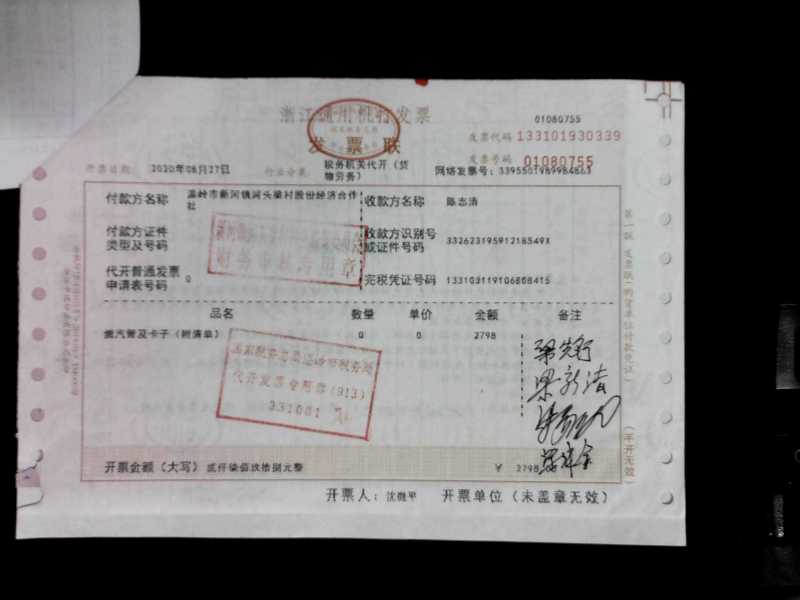 浙江通用机打发票
发票联
01080755
发票代码 133101930339
发票号码 01080755
开票日期 2020年08月27日 行业分类 税务机关代开（货物劳务） 网络发票号：3395501989984863
付款方名称 温岭市新河镇河头梁村股份经济合作社 收款方名称 陈志清
付款方证件类型及号码 收款方识别号或证件号码 33262319591218549X
代开普通发票申请表号码 0 完税凭证号码 133103119106808415
财务审核专用章
品名 数量 单价 金额 备注
蒸汽管及卡子（附清单） 0 0 2798
代开发票专用章(913)
331001
梁新清
开票金额（大写） 贰仟柒佰玖拾捌元整 ￥ 2798
开票人：沈微平 开票单位（未盖章无效）
（手开无效）